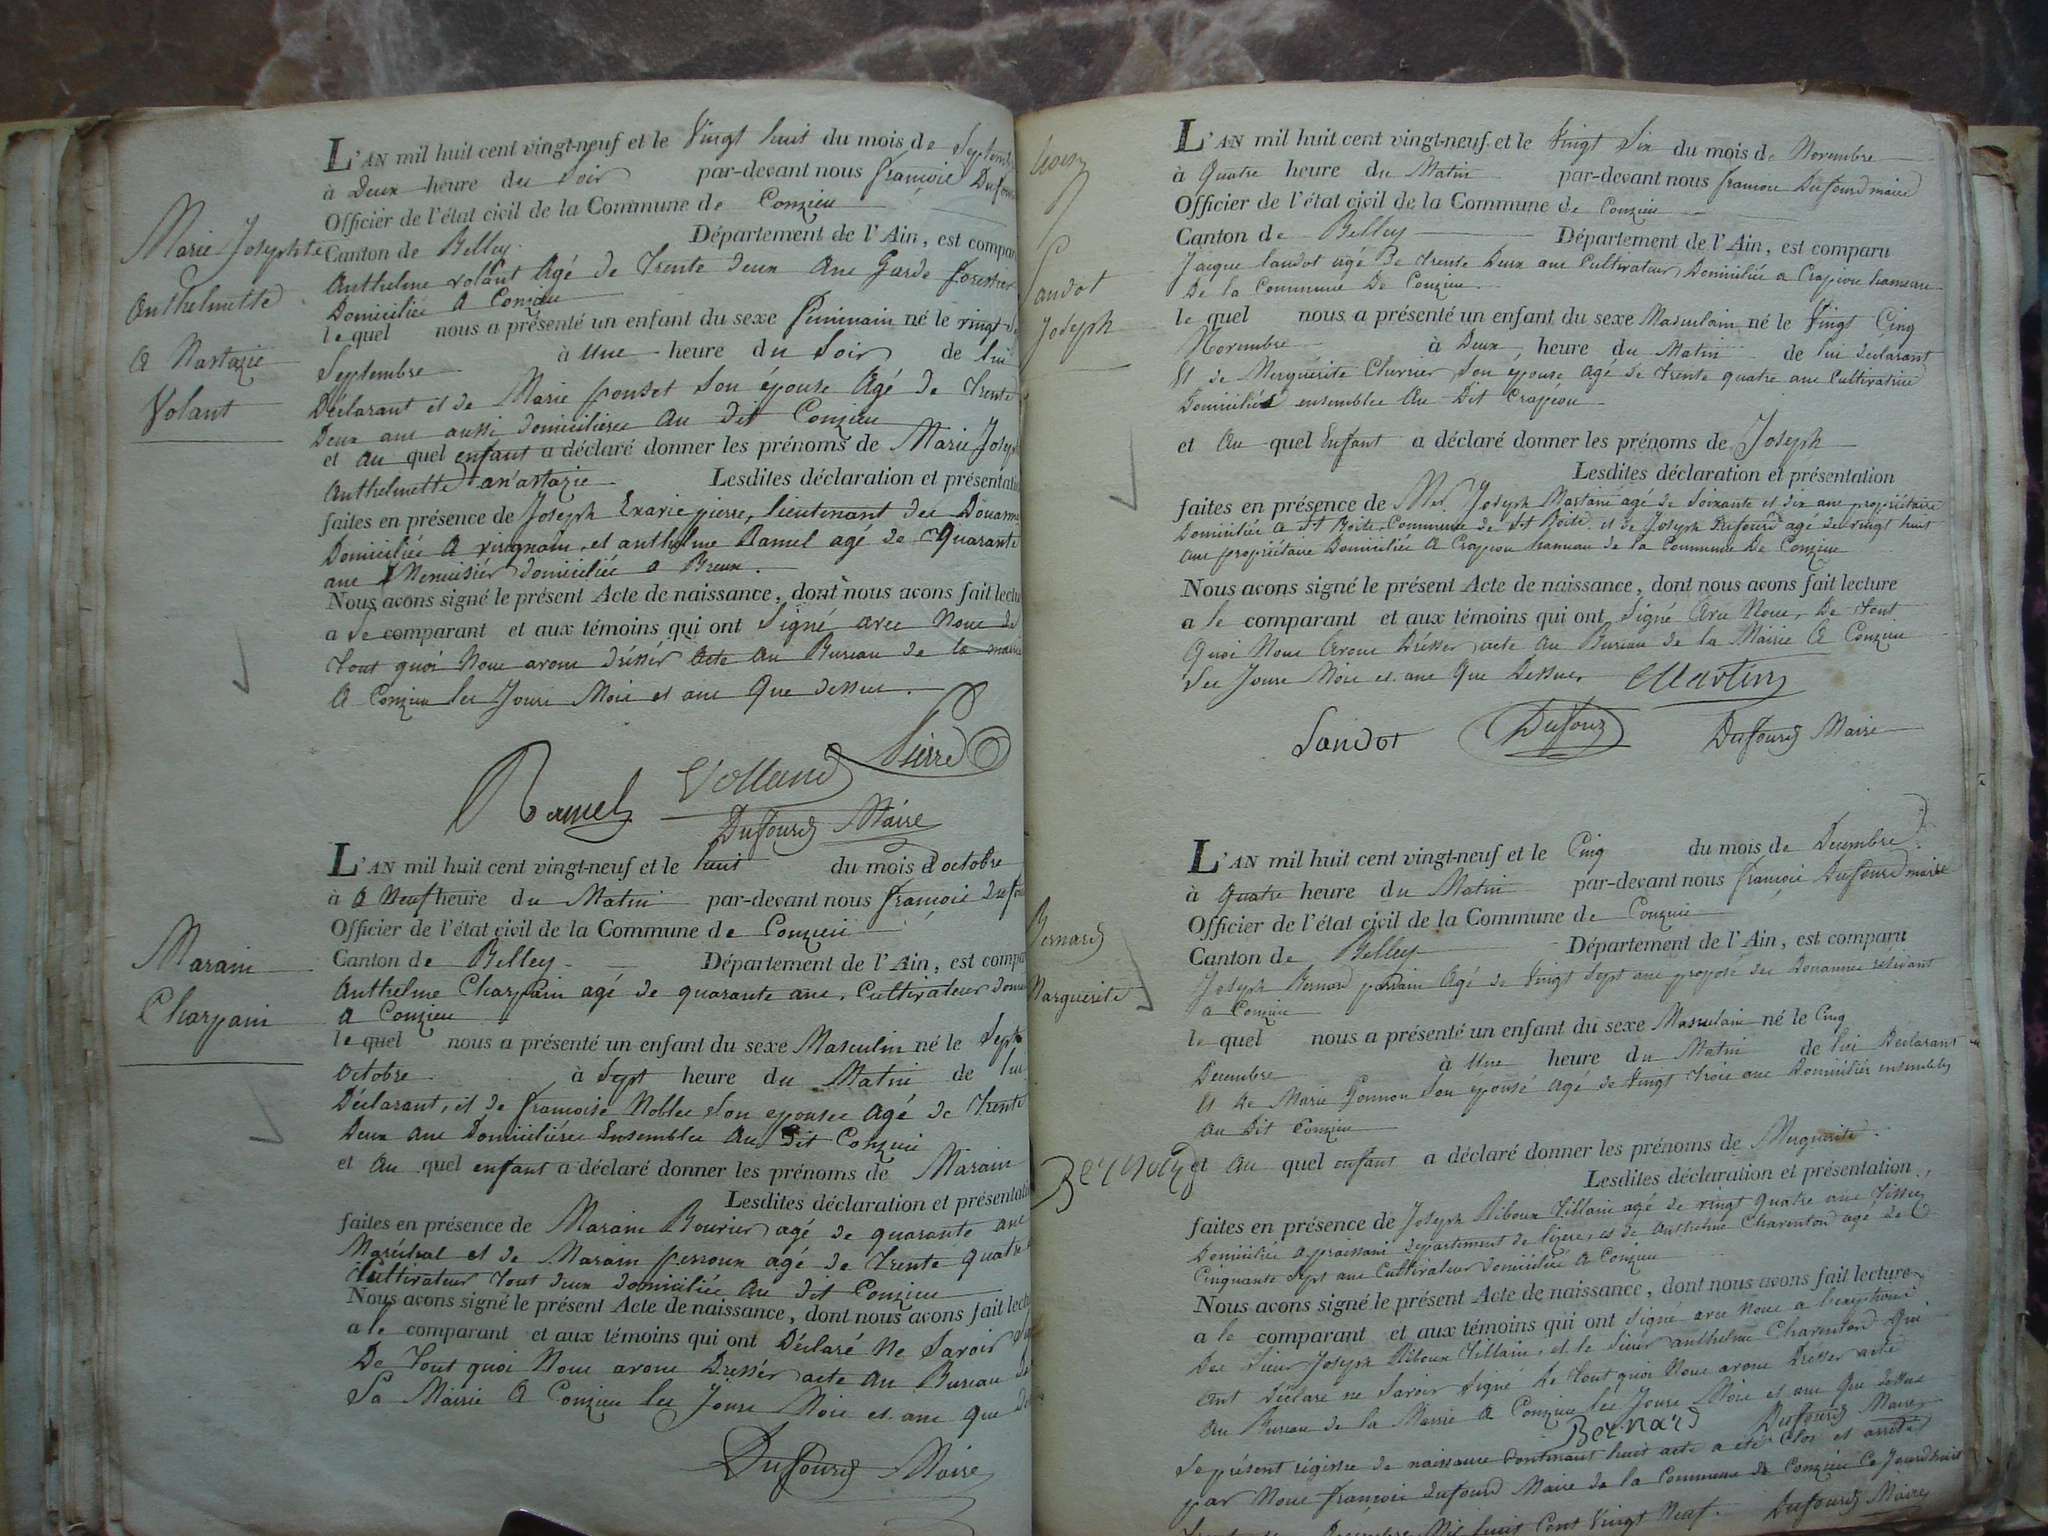 Marie Josephte
Anthelmette
A Nastazie
Volant
L'AN mil huit cent vingt-neuf et le Vingt huit du mois de Septemb
à Deux heure du Soir par-devant nous françois Dufour
Officier de l'état civil de la Commune de Conzieu
Canton de Belley Département de l'Ain, est compar
Anthelme volant Agé de Trente deux Ans Garde forestier
Domiciliée A Conzieu
le quel nous a présenté un enfant du sexe féminain né le vingt
Septembre à Une heure du Soir de lui
Déclarant et de Marie ponset Son épouse Agé de Trente
Deux ans aussi domiciliées Au dit Conzieu
et au quel enfant a déclaré donner les prénoms de Marie Joseph
Anthelmette anastazie Lesdites déclaration et présentatio
faites en présence de Joseph Exavie pierre, lieutenant des Douanne
Domiciliée A et anthelme Ramel agé de Quarante
ans Menuisiér domiciliée a Breux.
Nous avons signé le présent Acte de naissance, dont nous avons fait lectu
a le comparant et aux témoins qui ont Signé avec Nous De
tout quoi Nous avons dréssér acte au Bureau de la mairie
A Conzieu les Jours Mois et ans Que dessus.
Pierre
Ramel Volland
Dufourd Maire
Marain
Charpain
L'AN mil huit cent vingt-neuf et le huit du mois d'octobre
à A Neuf heure du Matin par-devant nous françois Dufou
Officier de l'état civil de la Commune de Conzieu
Canton de Belley Département de l'Ain, est compa
Anthelme Charpain agé de quarante ans, Cultivateur Domi
A Conzieu
le quel nous a présenté un enfant du sexe Masculin né le Sept
Octobre à Sept heure du Matin de lui
Déclarant, et de françoise Nobles Son epouse Agé de Trente
Deux ans Domiciliées Ensembles Au Dit Conzieu
et Au quel enfant a déclaré donner les prénoms de Marain
Lesdites déclaration et présentati
faites en présence de Marain Bourier agé de quarante ans
Maréchal et de Marain perroux agé de Trente quatre
Cultivateur tout deux domiciliée Au dit Conzieu
Nous avons signé le présent Acte de naissance, dont nous avons fait lectu
a le comparant et aux témoins qui ont Déclaré Ne Savoir
De tout quoi Nous avons Dressér acte Au Bureau De
La Mairie A Conzieu les Jours Mois et ans que
Dufourd Maire
Landot
Joseph
L'AN mil huit cent vingt-neuf et le Vingt Six du mois de Novembre
à Quatre heure du Matin par-devant nous françois Dufourd maire
Officier de l'état civil de la Commune de Conzieu
Canton de Belley Département de l'Ain, est comparu
Jacque landot agé De trente Deux ans Cultivateur Domiciliée a Crapiou hameau
De la Commune De Conzieu
le quel nous a présenté un enfant du sexe Masculain né le Vingt Cinq
Novembre à Deux heure du Matin de lui déclarant
Et de Merguérite Chuvrier Son épouse agé de trente quatre ans Cultivatrice
Domiciliés ensembles Au Dit Crapiou
et Au quel Enfant a déclaré donner les prénoms de Joseph
Lesdites déclaration et présentation
faites en présence de Joseph Martain agé de Soixante et dix ans propriétaire
Domiciliée a St Boite Commune de St Boite et de Joseph Dufourd agé de vingt huit
ans propriétaire Domiciliée A Crapiou hameau de la Commune De Conzieu
Nous avons signé le présent Acte de naissance, dont nous avons fait lecture
a le comparant et aux témoins qui ont Signé Avec Nous, De tout
Quoi Nous Avons Drésser acte Au Bureau de la Mairie A Conzieu
Les Jours Mois et ans Que Dessus. Martin
Landot Dufour Dufourd Maire
Bernard
Marguerite
L'AN mil huit cent vingt-neuf et le Cinq du mois de Decembre
à Quatre heure du Matin par-devant nous françois Dufourd maire
Officier de l'état civil de la Commune de Conzieu
Canton de Belley Département de l'Ain, est comparu
Joseph Bernard Agé de Vingt Sept ans proposé des Douannes résidant
a Conzieu
le quel nous a présenté un enfant du sexe Masculain né le Cinq
Decembre à Une heure du Matin de lui Déclarant
Et de Marie Gonnon Son epouse Agé de Vingt trois ans Domiciliés ensembles
Au Dit Conzieu
Bernard et Au quel enfant a déclaré donner les prénoms de Merguerite
Lesdites déclaration et présentation
faites en présence de Joseph Riboux Tillain agé de vingt quatre ans Tissieu
Domiciliée A département de lizere, et de Anthelme Charenton agé de
Cinquante Sept ans Cultivateur Domiciliée A Conzieu
Nous avons signé le présent Acte de naissance, dont nous avons fait lecture
a le comparant et aux témoins qui ont Signé avec Nous a l'exeption
Des Sieur Joseph Riboux Tillain, et le Sieur anthelme Charenton Qui
ont Déclaré ne Savoir Signé De tout quoi Nous avons Drésser acte
Au Bureau de la Mairie A Conzieu les Jours Mois et ans Que dessus
Bernard Dufourd Maire
Le présent régistre de naissance Contenant huit acte a été Clos et arrété
par Nous françois Dufourd Maire de la Commune de Conzieu Ce Jourdhuit
Decembre Mil huit Cent Vingt Neuf. Dufourd Maire